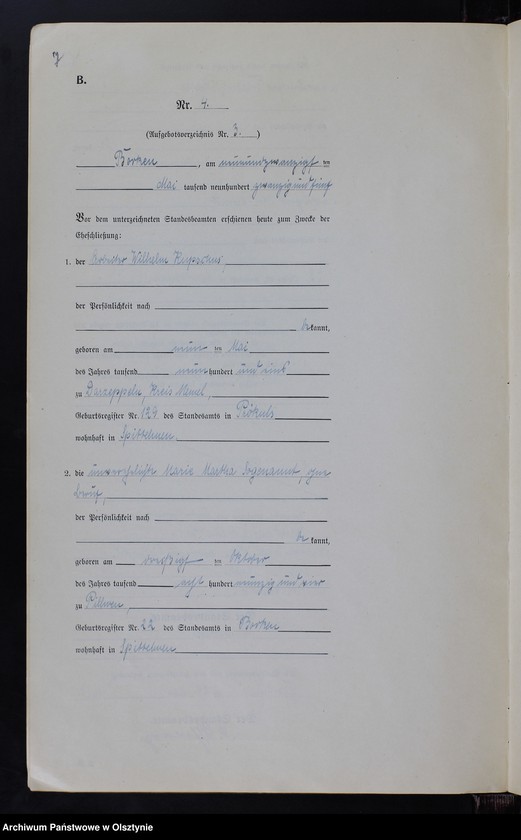 B.
Nr. 4.
(Aufgebotsverzeichnis Nr. 3.)
Borken, am neunundzwanzigsten
Mai tausend neunhundert zwanzig und fünf
Vor dem unterzeichneten Standesbeamten erschienen heute zum Zwecke der
Eheschließung:
1. der Arbeiter Wilhelm
der Persönlichkeit nach
bekannt,
geboren am neunten Mai
des Jahres tausend neunhundert und eins
zu Darzeppeln, Kreis Memel,
Geburtsregister Nr. 129 des Standesamts in Prökuls
wohnhaft in Spittehnen.
2. die unverehelichte Marie Martha Sogenannt, ohne
Beruf,
der Persönlichkeit nach
bekannt,
geboren am dreißigsten Oktober
des Jahres tausend acht hundert neunzig und vier
zu Pillwen,
Geburtsregister Nr. 22 des Standesamts in Borken
wohnhaft in Spittehnen
Archiwum Państwowe w Olsztynie